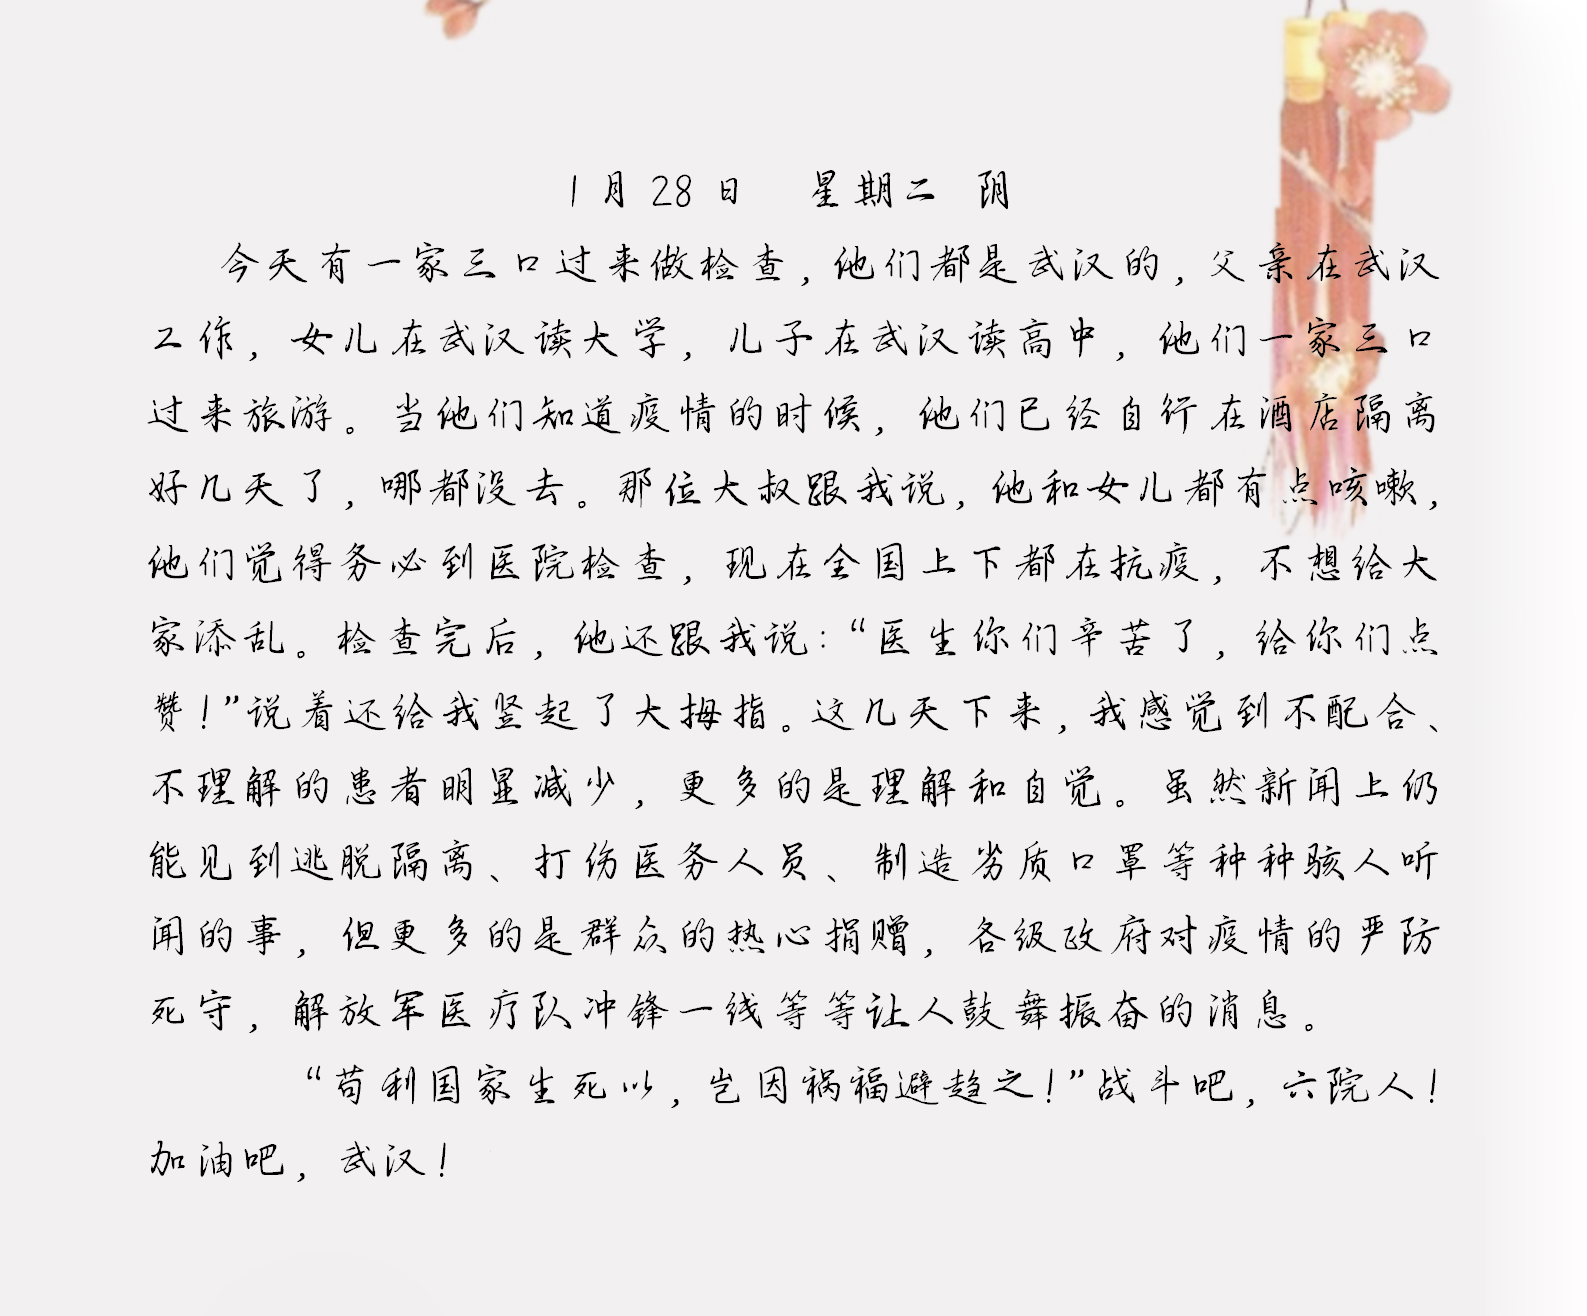 1月28日 星期二 阴
今天有一家三口过来做检查,他们都是武汉的,父亲在武汉
工作,女儿在武汉读大学,儿子在武汉读高中,他们一家三口
过来旅游。当他们知道疫情的时候,他们已经自行在酒店隔离
好几天了,哪都没去。那位大叔跟我说,他和女儿都有点咳嗽,
他们觉得务必到医院检查,现在全国上下都在抗疫,不想给大
家添乱。检查完后,他还跟我说:“医生你们辛苦了,给你们点
赞!”说着还给我竖起了大拇指。这几天下来,我感觉到不配合、
不理解的患者明显减少,更多的是理解和自觉。虽然新闻上仍
能见到逃脱隔离、打伤医务人员、制造劣质口罩等种种骇人听
闻的事,但更多的是群众的热心捐赠,各级政府对疫情的严防
死守,解放军医疗队冲锋一线等等让人鼓舞振奋的消息。
“苟利国家生死以,岂因祸福避趋之!”战斗吧,六院人!
加油吧,武汉!